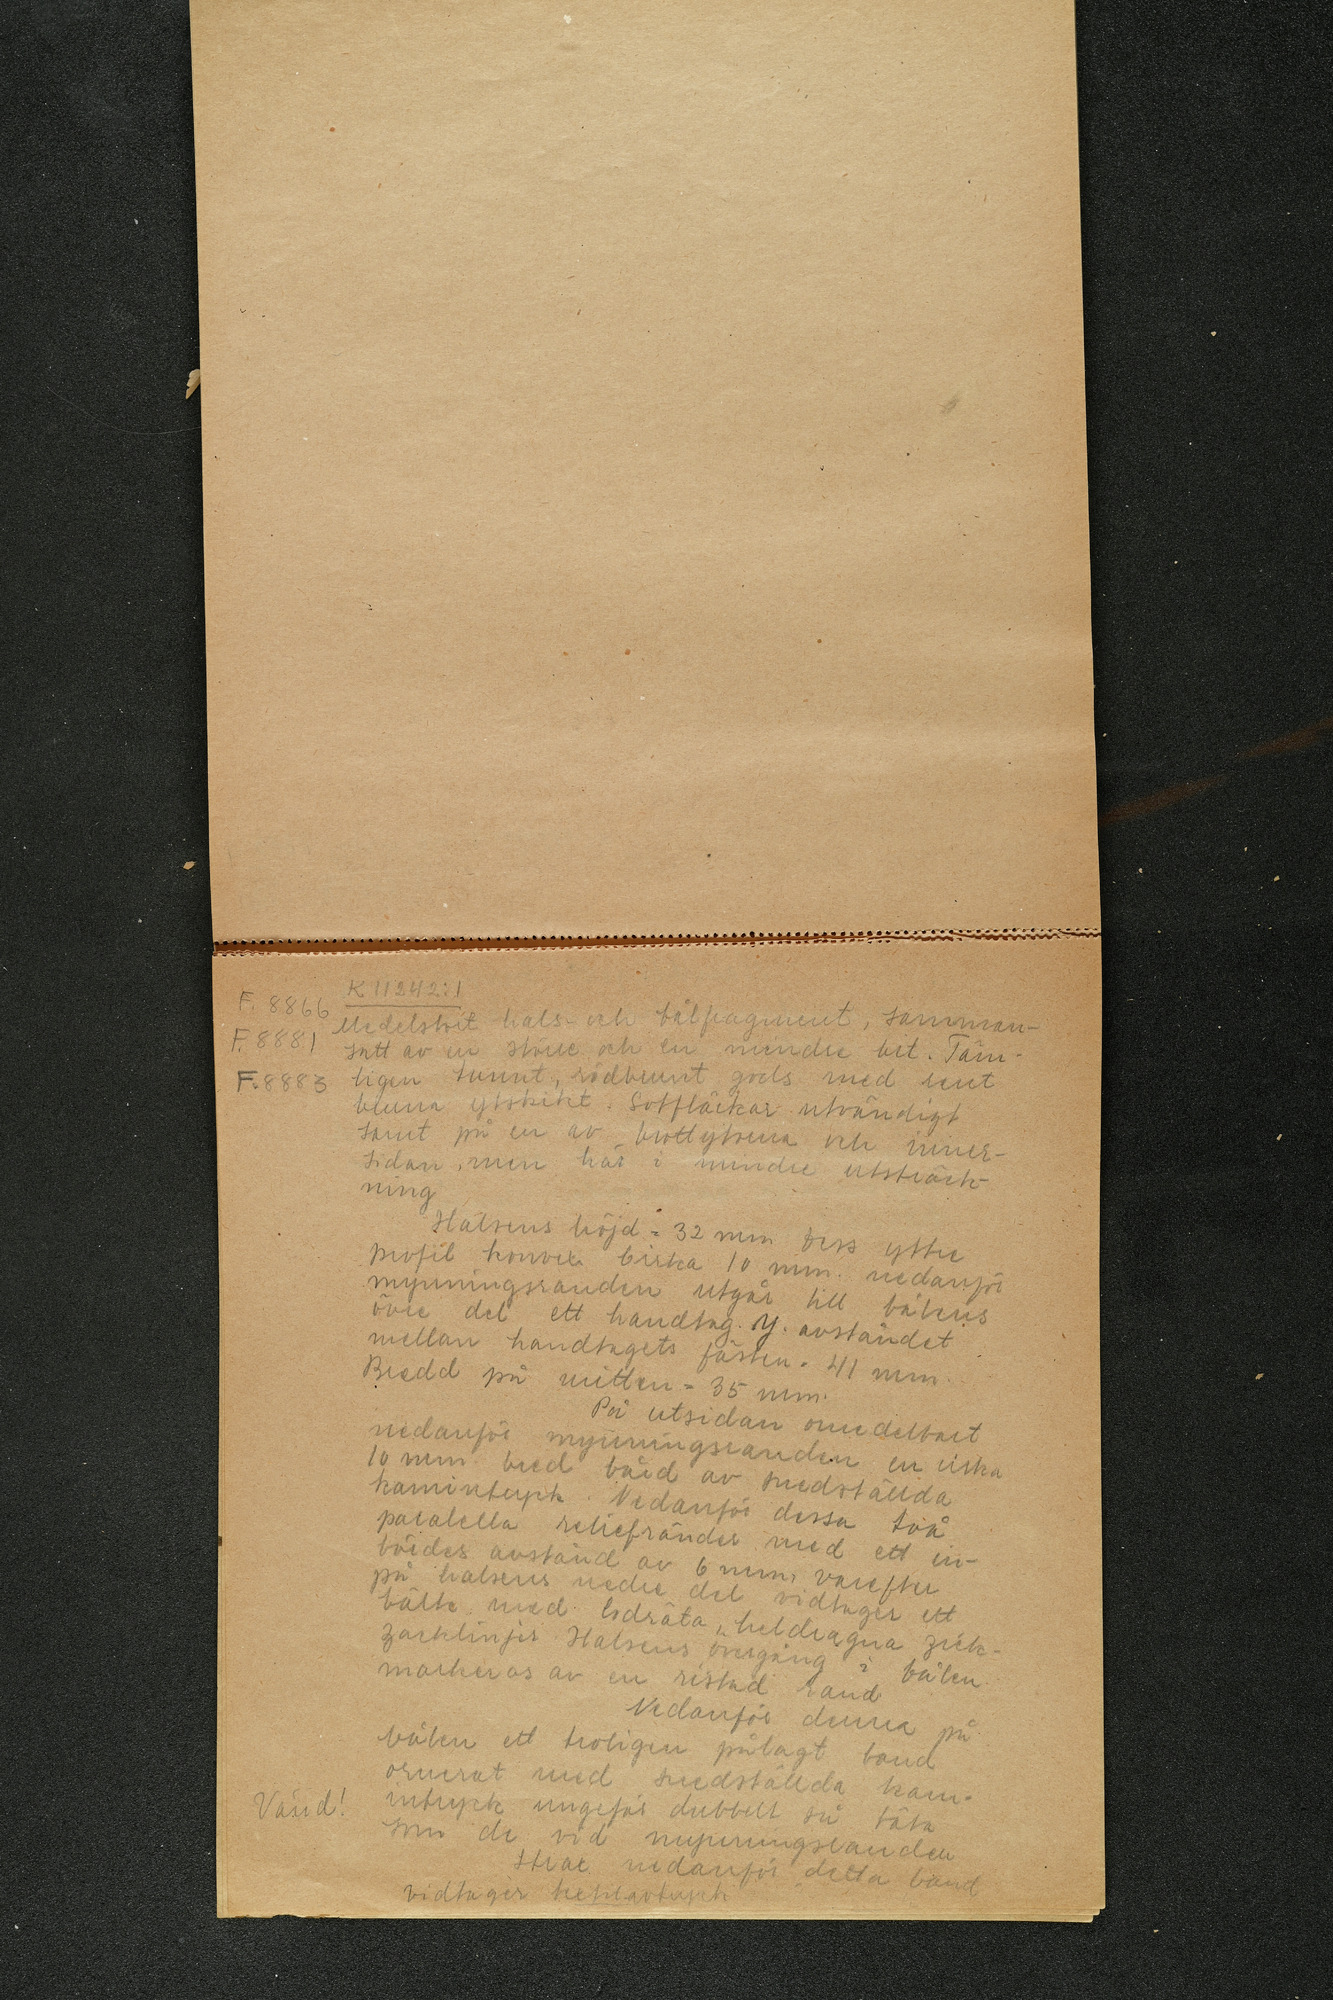 K 11242:1
F. 8866
F. 8881
F. 8883
Medelstort hals- och bålfragment, samman-
satt av en större och en mindre bit. Täm-
ligen tunnt, rödbrunt gods med rent
bruna ytskikt. Sotfläckar utvändigt
samt på en av brottytorna och inner-
sidan, men här i mindre utsträck-
ning
Halsens höjd = 32 mm Dess yttre
profil konvex Cirka 10 mm. nedanför
mynningsranden utgår till bålens
övre del ett handtag. Y. avståndet
mellan handtagets fästen = 41 mm.
Bredd på mitten = 35 mm.
På utsidan omedelbart
nedanför mynningsranden en cirka
10 mm. bred bård av snedställda
kamintryck. Nedanför dessa två
parallella reliefränder med ett in-
bördes avstånd av 6 mm, varefter
på halsens nedre del vidtager ett
bälte med lodräta, heldragna zick-
zacklinjer Halsens övergång i bålen
markeras av en ristad rand
Nedanför denna på
bålen ett troligen pålagt band
ornerat med snedställda kam-
intryck ungefär dubbelt så täta
som de vid mynningsranden
Strax nedanför detta band
vidtager
Vänd!